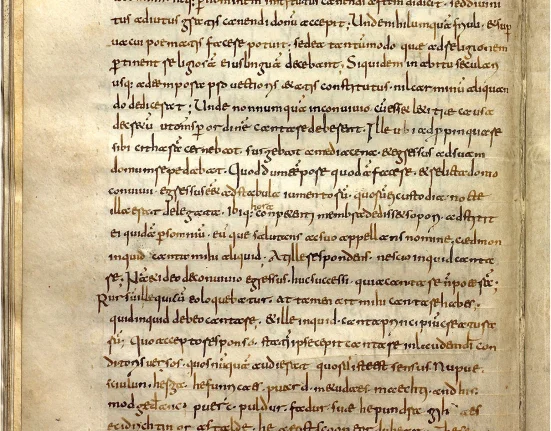 tus adiutus gratis canendi donū accepit; Unde nihil umquā friuoli & sup
uacui poematis facere potuit; sed ea tantūmodo que ad religionem
pertinent religiosā eius linguā decebant. Siquidem in abitu seculari
usq; ad tempora prouectioris aetatis constitutus. nil carminū aliquan
do dedicerat; Unde nonnumquā in conuiuio cū esset laetitiae causa
decretū ut omnes per ordinē cantare deberent. Ille ubi adppinquare
sibi citharā cernebat. surgebat a media cena. & egressus ad suam
domum repedabat. Quod dum tempore quodā faceret. & relicta domo
conuiuii. egressus esset ad stabula iumentorū. quorū ei custodia nocte
illa erat delegata. ibiq; hora conpetenti membra dedisset sopori. adstitit
ei quidā p somniū. eūque salutans ac suo appellans nomine. cedmon
inquid canta mihi aliquid. At ille respondens. nescio inquid canta
re; Nā & ideo de conuiuio egressus. huc successi. quia cantare n̄ poterā;
Rursū ille qui cū eo loquebatur. at tamen ait mihi cantare habes.
quid inquid debeo cantare. & ille inquid. canta principiū creatura
rū; Quo accepto responso. statī ipse cepit cantare in laudem di con
ditoris uersos. quos nūquā audierat quorū iste est sensus Nu pue.
sciulun. herga. hefunricaes. puard. metudaes. maechti. and his.
modgedanc. puerc. puldur. fadur. sue he pundra. gihuaes